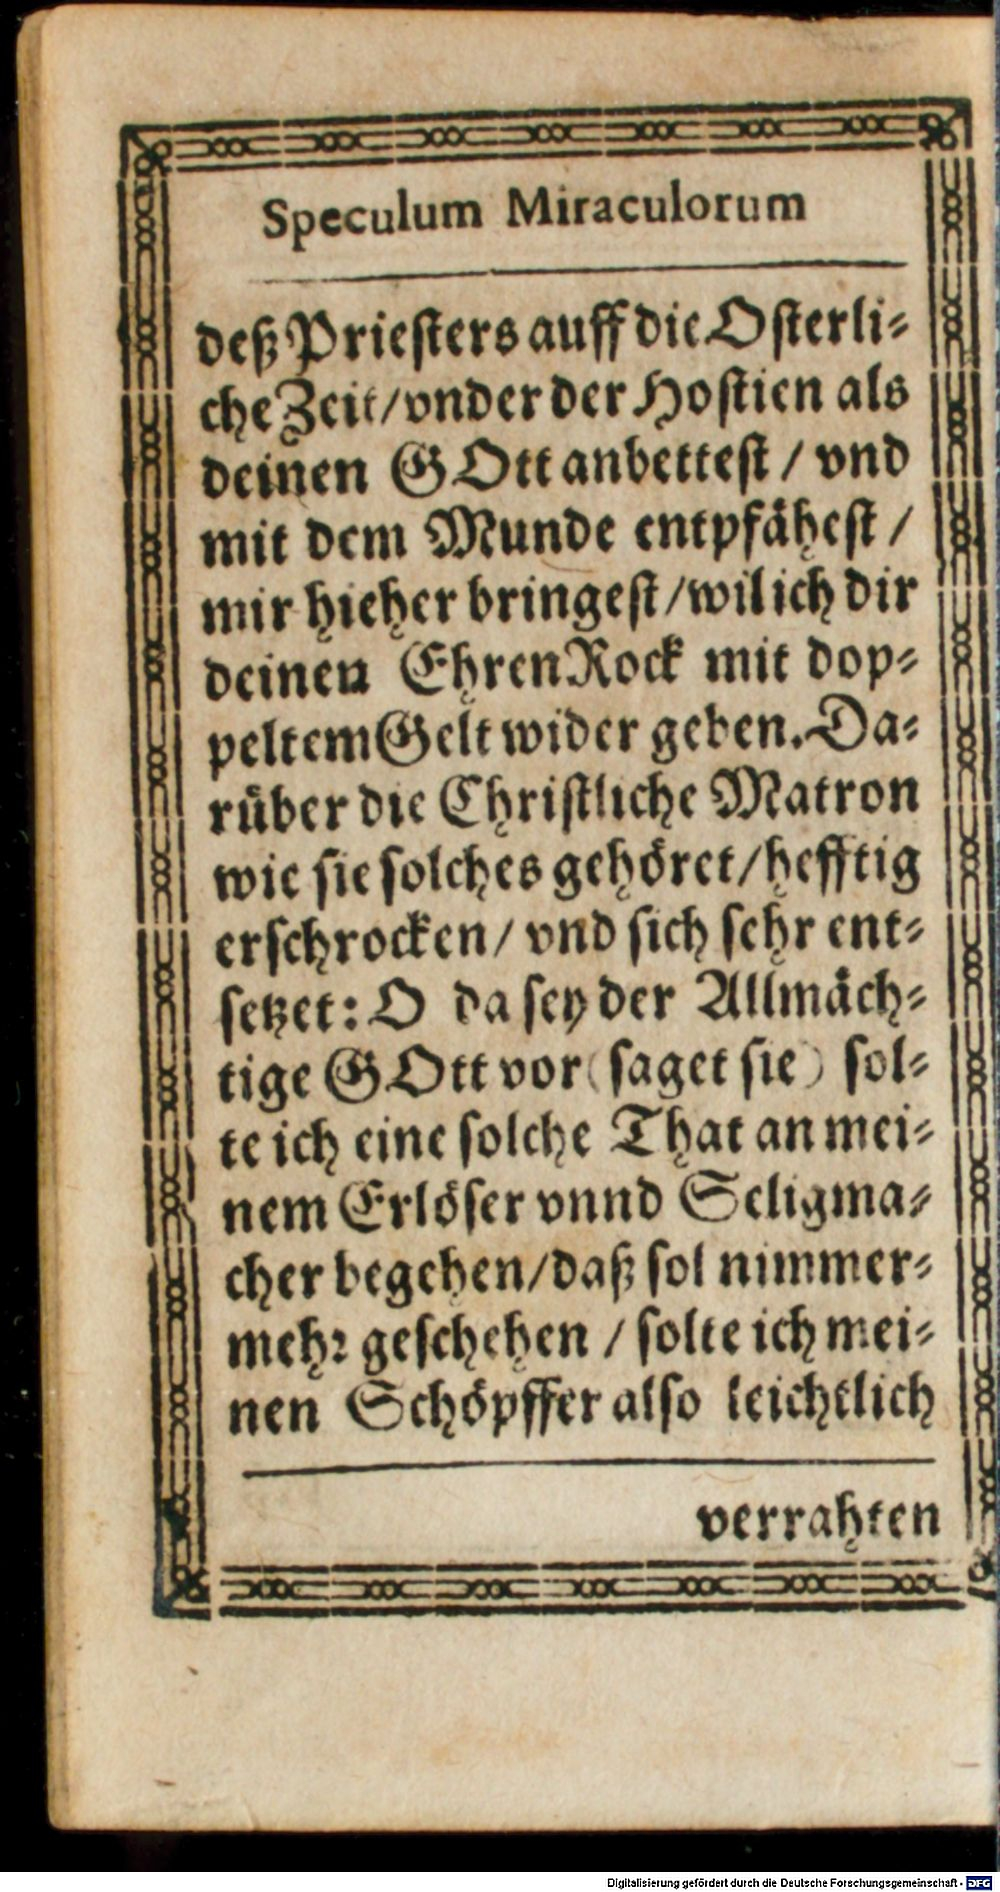 Speculum Miraculorum
deß Priesters auff die Osterli-
che Zeit/vnder der Hostien als
deinen GOtt anbettest / vnd
mit dem Munde entpfähest /
mir hieher bringest/wil ich dir
deinen EhrenRock mit dop-
peltem Gelt wider geben. Da-
rüber die Christliche Matron
wie sie solches gehöret/hefftig
erschrocken/ vnd sich sehr ent-
setzet: O da sey der Allmäch-
tige GOtt vor (saget sie) sol-
te ich eine solche That an mei-
nem Erlöser vnnd Seligma-
cher begehen/daß sol nimmer-
mehr geschehen / solte ich mei-
nen Schöpffer also leichtlich
verrahten
Digitalisierung gefördert durch die Deutsche Forschungsgemeinschaft - DFG